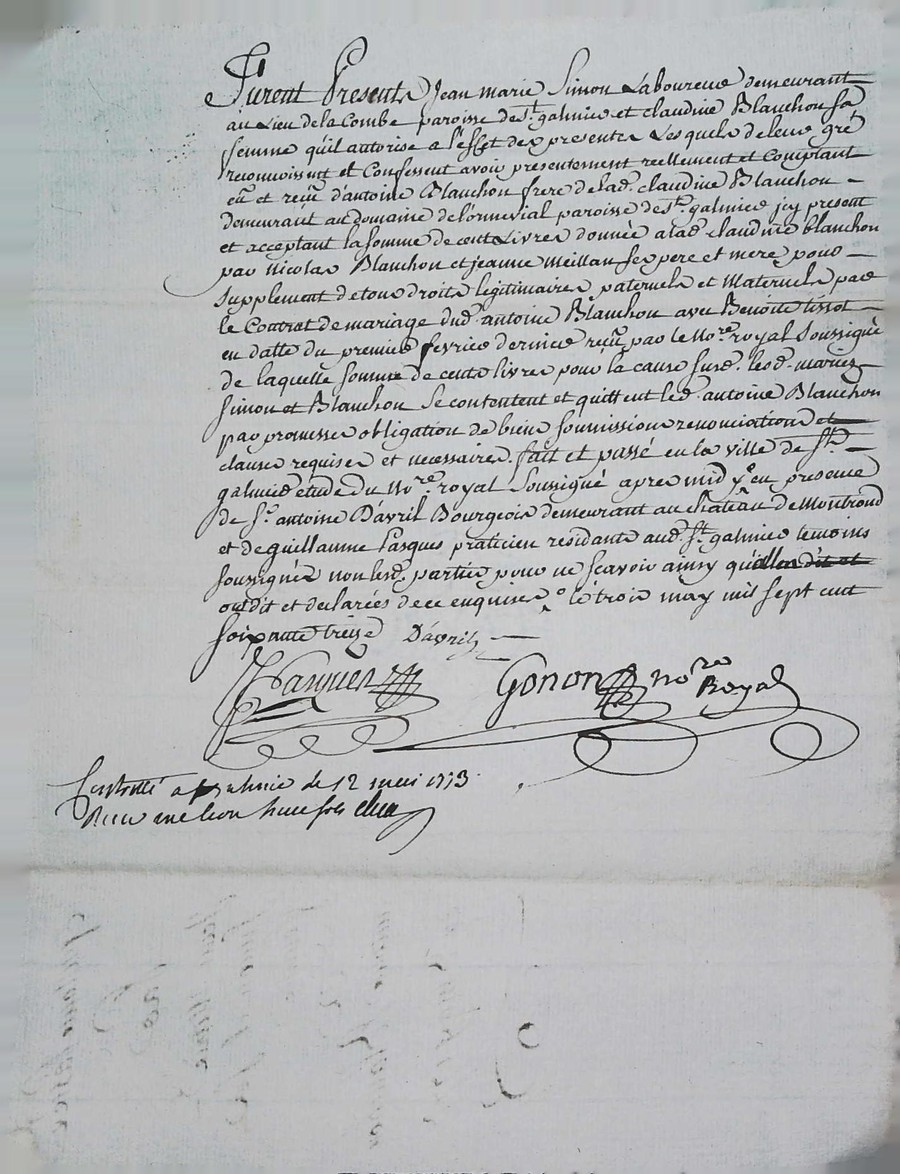 Furent Presents Jean marie Simon Laboureur demeurant
au Lieu de la Combe paroisse de St. galmier et claudine Blanchon sa
femme qu'il autorise a l'effet des presentes Lesquels de leur gré
reconnoissent et Confessent avoir presentement reellement et Comptant
eu et reçu d'antoine Blanchon frere de lad. claudine Blanchon
demeurant au domaine de paroisse de St. galmier icy present
et acceptant la somme de cent Livres donnée a lad. claudine blanchon
par Nicolas Blanchon et jeanne Meillan ses pere et mere pour
Supplement de tous droits legitimaires paternels et Maternels par
le Contrat de mariage dud. antoine Blanchon avec Benoite tissot
en datte du premier fevrier dernier reçu par le No.re royal Soussigné
de laquelle somme de cents livres pour la cause susd. lesd. mariez
Simon et Blanchon se contentent et quittent led. antoine Blanchon
par promesses obligation de biens soumissions renonciations et
clauses requises et necessaires. fait et passé en la ville de St.
galmier etude du No.re royal Soussigné apres midy en presence
de Sr. antoine D'avril Bourgeois demeurant au château de Montrond
et de guillaume Pasques praticien residants aud. St. galmier temoins
soussignés non lesd. parties pour ne scavoir ainsy qu'ils
ont dit et declarées de ce enquises le trois may mil sept cent
soixante treize D'avril
Pasques Gonon no.re
Royal
Controllé a St. galmier le 12 mai 1773
Reçu une livre sols